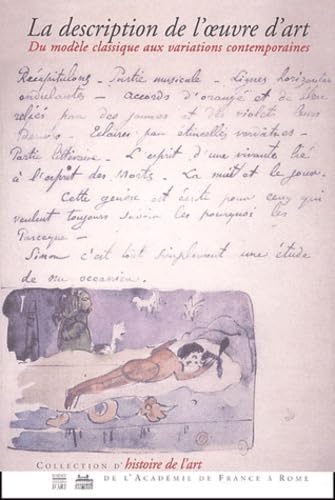 La description de l'œuvre d'art
Du modèle classique aux variations contemporaines
Récapitulons - Partie musicale - Lignes horizontales
ondulantes - accords d'orangé et de bleu
reliés par des jaunes et des violets leurs
dérivés - Eclairés par étincelles verdâtres -
Partie littéraire - L'esprit d'une vivante lié
à l'esprit des Morts - La nuit et le jour.
Cette genèse est écrite pour ceux qui
veulent toujours savoir les pourquoi les
parceque -
Sinon c'est tout simplement une étude
de nu océanien.
COLLECTION D'histoire de l'art
DE L'ACADÉMIE DE FRANCE À ROME